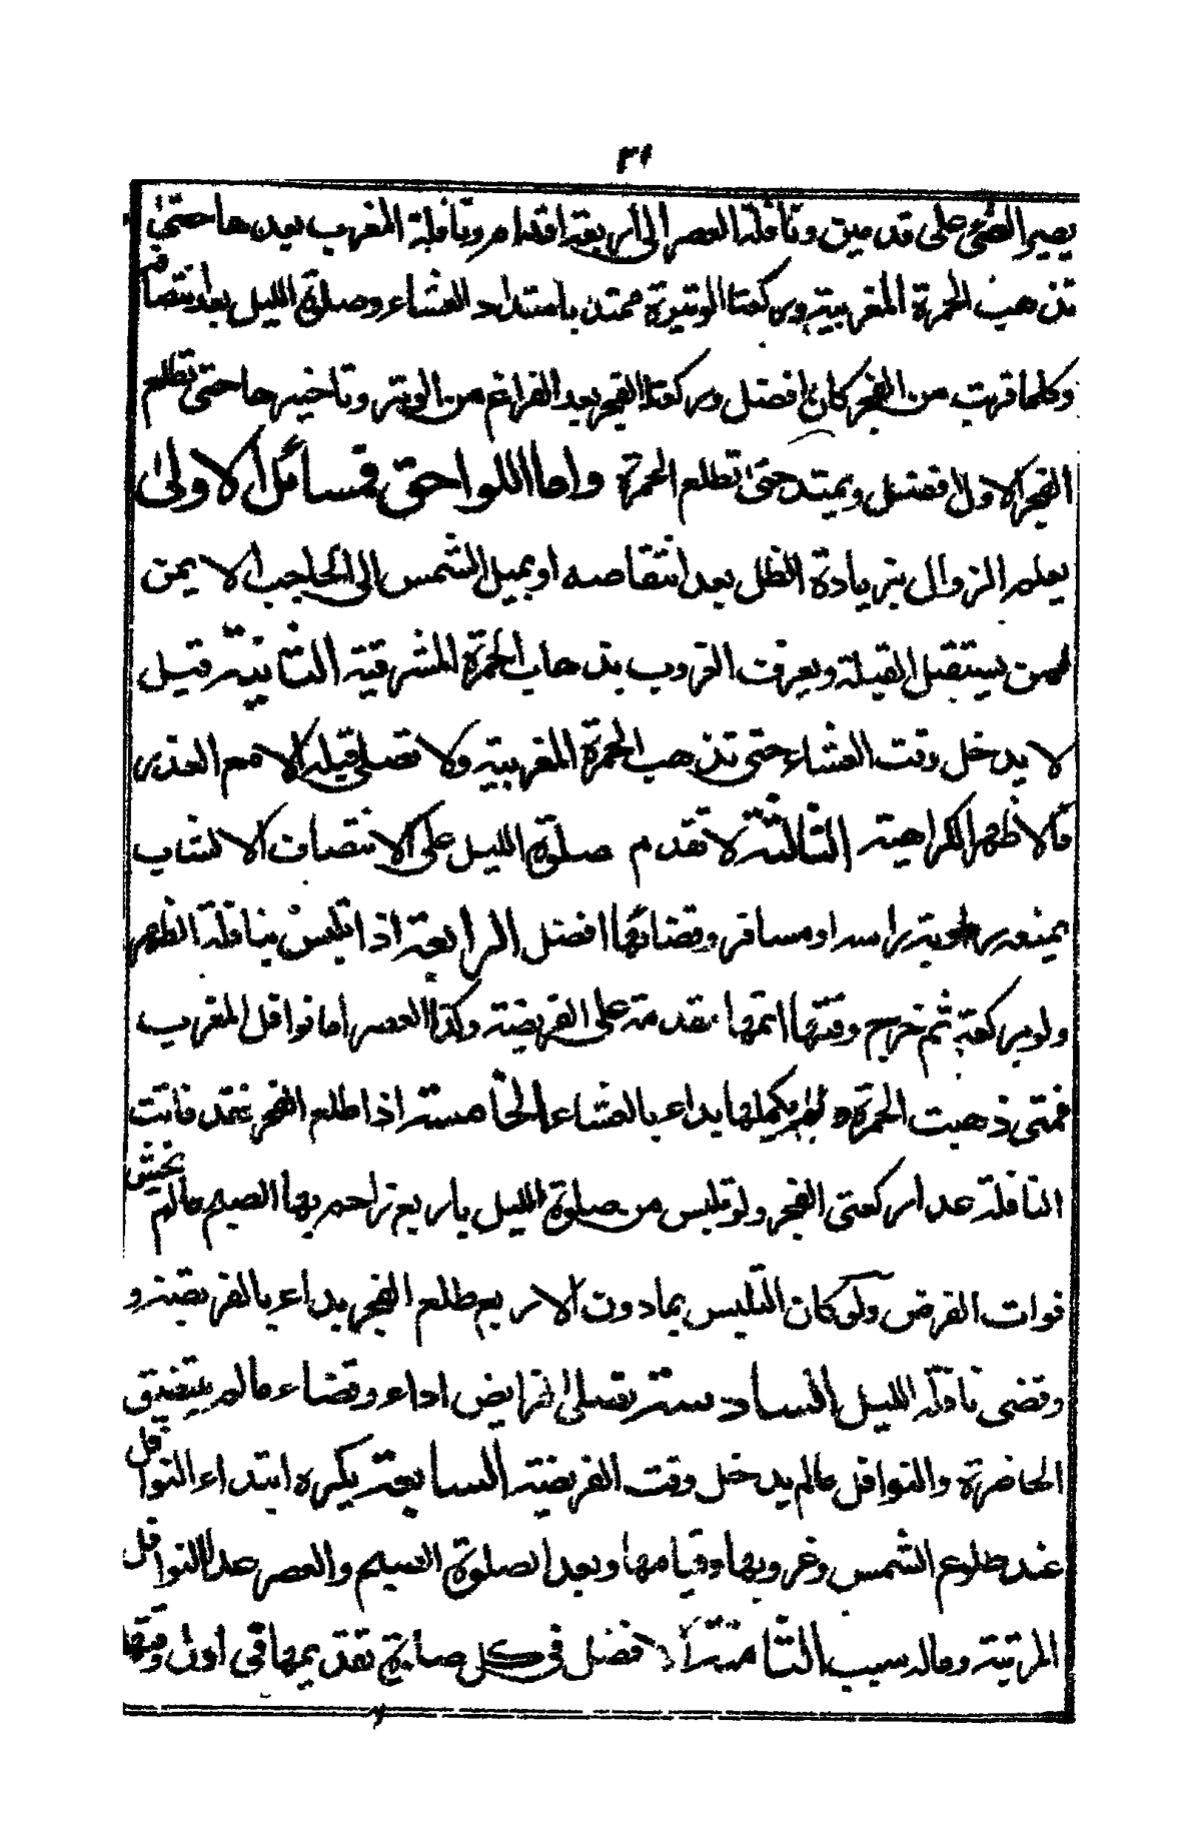 ٣١
يصير الفئ على قدمين ونافلة العصر الى اربعة اقدام ونافلة المغرب بعدها حتى
تذهب الحمرة المغربية وركعتا الوتيرة تمتد بامتداد العشاء وصلوة الليل بعد انتصافه
وكلما قربت من الفجر كان افضل وركعتا الفجر بعد الفراغ من الوتر وتاخيرها حتى تطلع
الفجر الاول افضل ويمتد حتى تطلع الحمرة واما اللواحق فمسائل الاولى
يعلم الزوال بزيادة الظل بعد انتقاصه او بميل الشمس الى الحاجب الايمن
لمن يستقبل القبلة ويعرف الغروب بذهاب الحمرة المشرقية الثانية قيل
لا يدخل وقت العشاء حتى تذهب الحمرة المغربية ولا تصلي قبله الا مع العذر
فالاظهر الكراهية الثالثة لا تقدم صلوة الليل على الانتصاف الا لشاب
يمنعه رطوبة راسه او مسافر وقضائها افضل الرابعة اذا تلبس بنافلة الظهر
ولو بركعة ثم خرج وقتها اتمها مقدمة على الفريضة وكذا العصر اما نوافل المغرب
فمتى ذهبت الحمرة ولم يكملها بداء بالعشاء الخامسة اذا طلع الفجر فقد فاتت
النافلة عدا ركعتى الفجر ولو تلبس من صلوة الليل باربع زاحم بها الصبح مالم يخش
فوات الفرض ولو كان التلبس بمادون الاربع طلع الفجر بداء بالفريضة و
وقضى نافلة الليل السادسة تصلى الفرايض اداء وقضاء مالم يتضيق
الحاضرة والنوافل مالم يدخل وقت الفريضة السابعة يكره ابتداء النوافل
عند طلوع الشمس وغروبها وقيامها وبعد الصلوة الصبح والعصر عدا النوافل
المرتبة وماله سبب الثامنة الافضل في كل صلوة تقديمها في اول وقتها